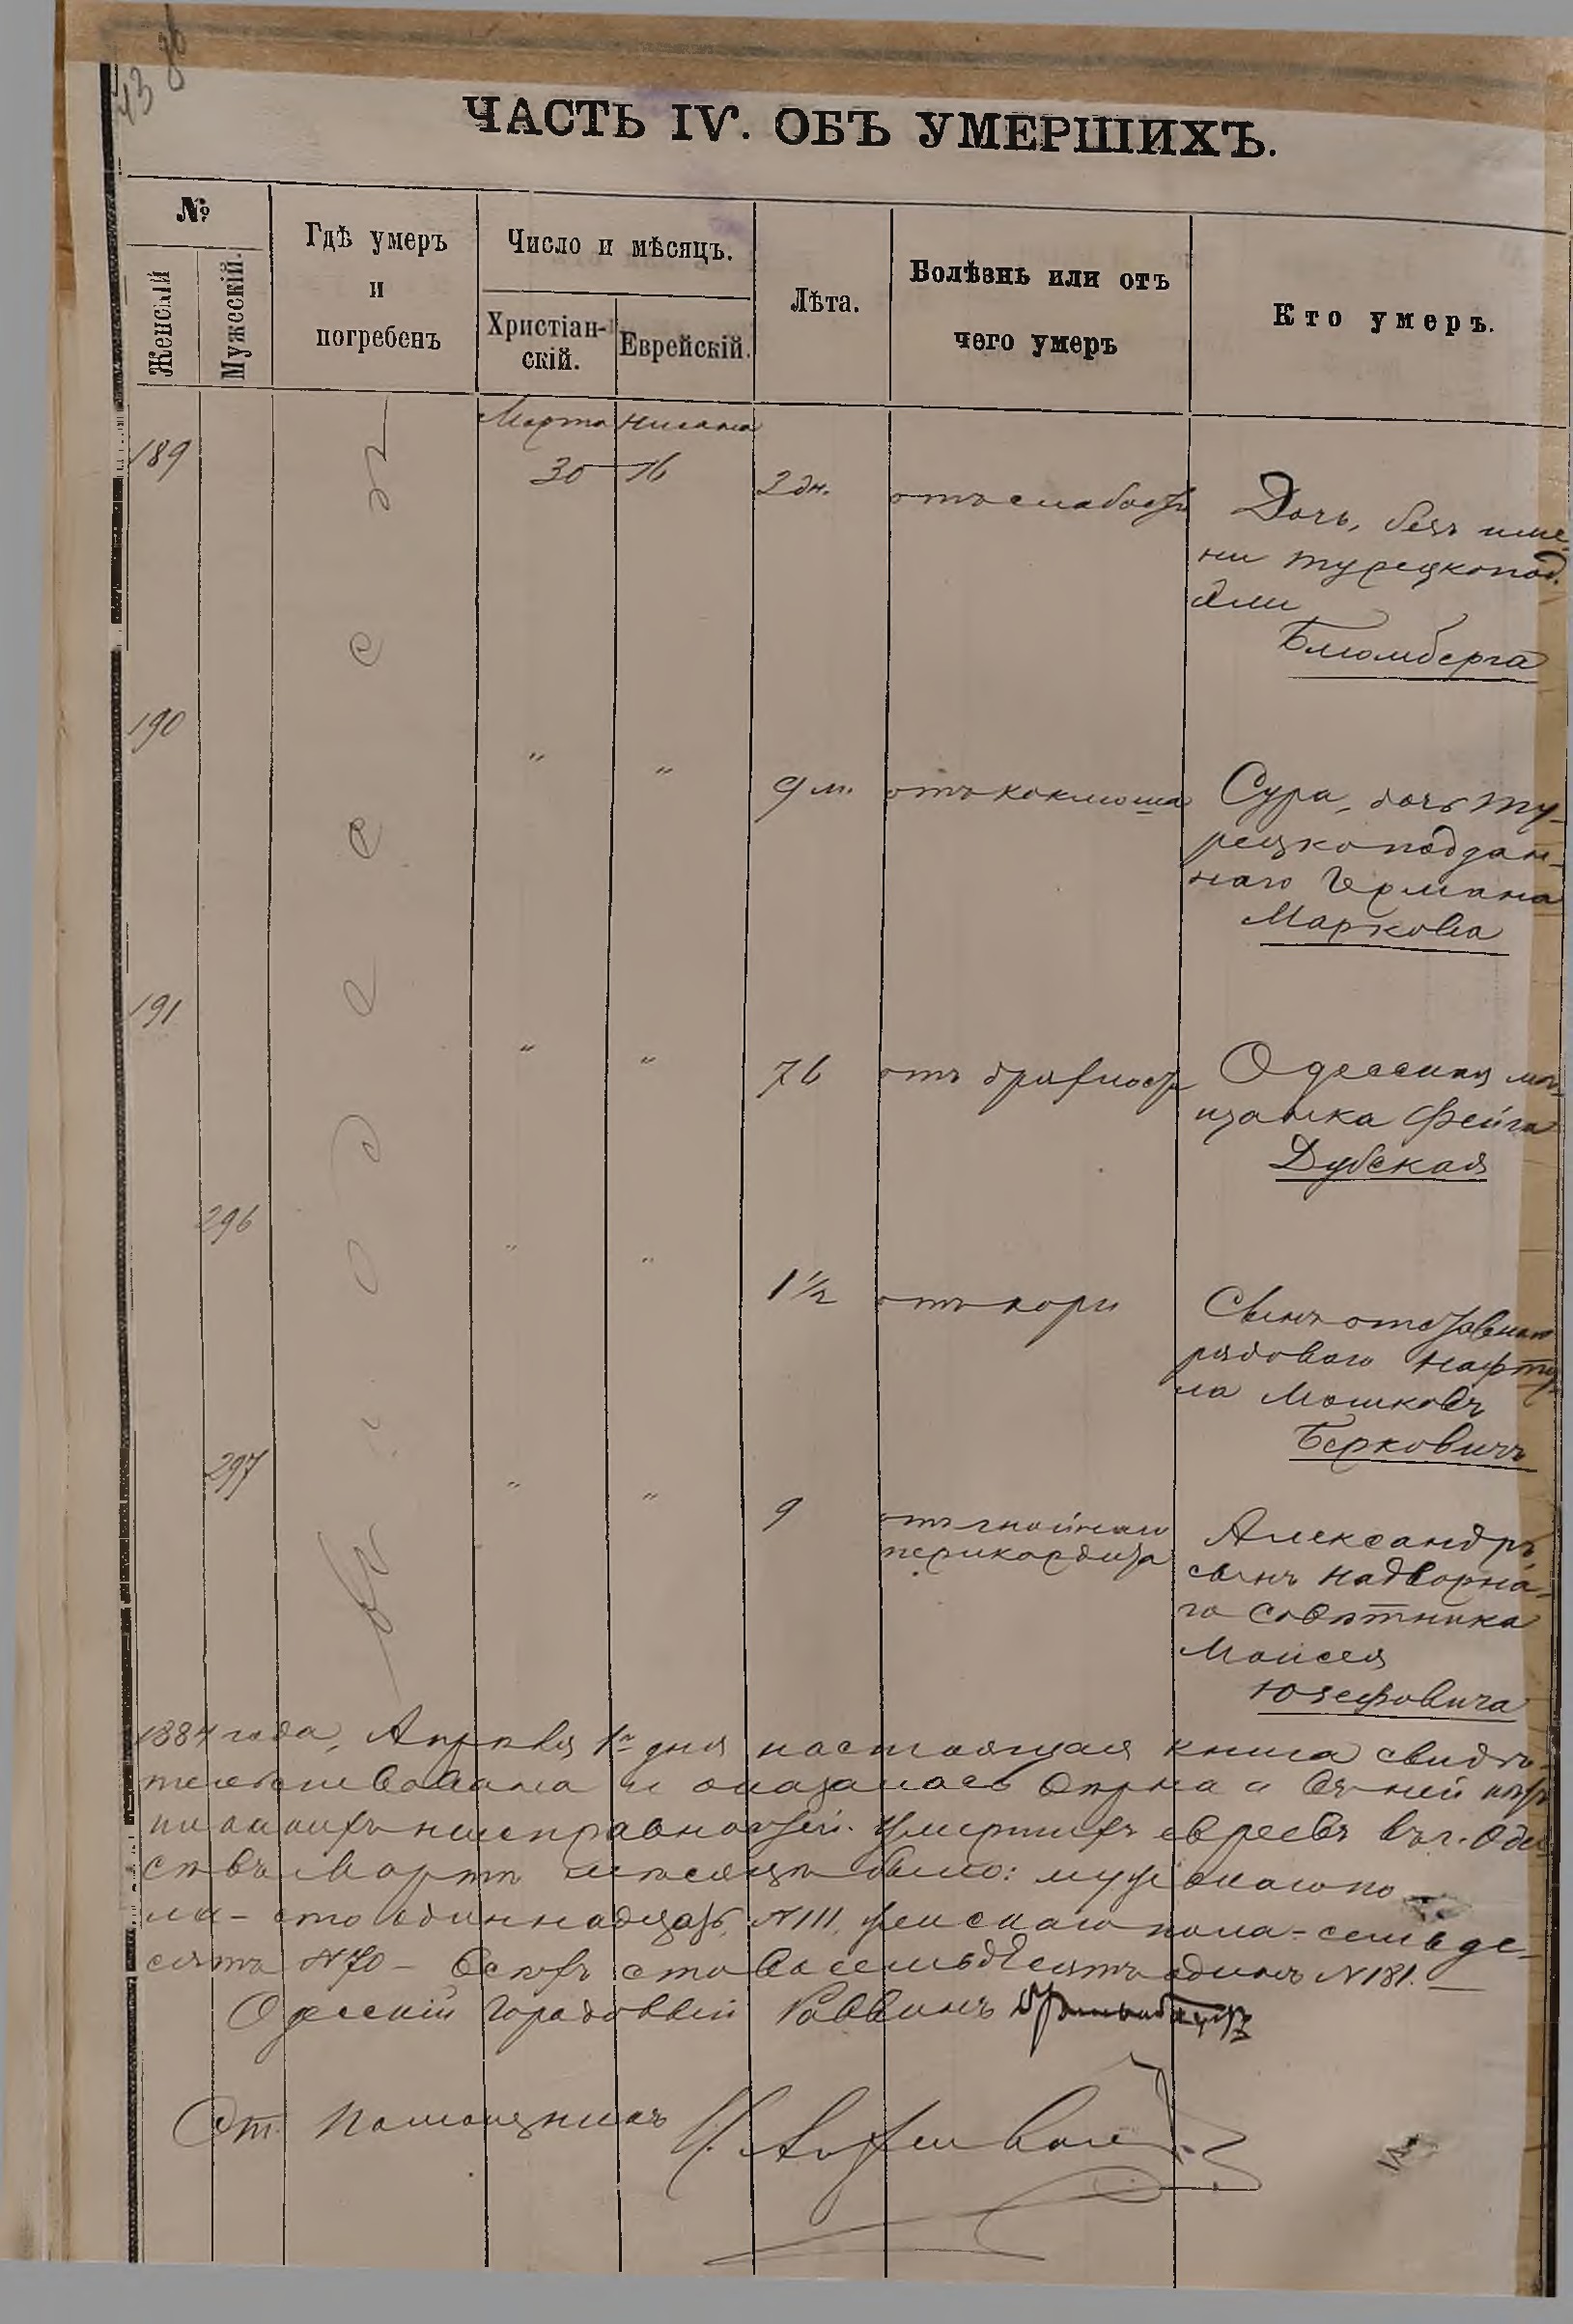 43
ЧАСТЬ IV. ОБЪ УМЕРШИХЪ.
№
Женскій
Мужескій.
Гдѣ умеръ
и
погребенъ
Число и мѣсяцъ.
Христіан-
скій.
Еврейскій.
Лѣта.
Болѣзнь или отъ
чего умеръ
Кто умеръ.
въ Одессѣ
Марта Нисана
189 30 16 2 дн. отъ слабости Дочь, безъ име-
ни турецкопод.
Блюмберга
190 " " 9 м. отъ коклюша Сура, дочь ту-
рецкоподдан-
наго Германа
Маркова
191 " " 76 отъ дряхлости Одесская мѣ-
щанка Фейга
Дубская
296 " " 1 1/2 отъ кори Сынъ отставнаго
рядоваго Нафту-
ла Мошковъ
Берковичъ
297 " " 9 отъ гнойнаго
перикардита
Александръ,
сынъ надворна-
го совѣтника
Моисея
Юзефовича
1884 года, Апрѣля 1го дня настоящая книга свидѣ-
тельствована и оказалась вѣрна и въ ней нѣтъ
никакихъ неисправностей. Умершихъ евреевъ въ г. Одес-
сѣ въ Мартѣ мѣсяцѣ было: мужскаго по
ла - сто одиннадцать, №111, женскаго пола - семьде-
сятъ №70 - Всѣхъ сто восемьдесятъ одинъ №181.
Одесскій Городовой Раввинъ
Ст. Помощникъ